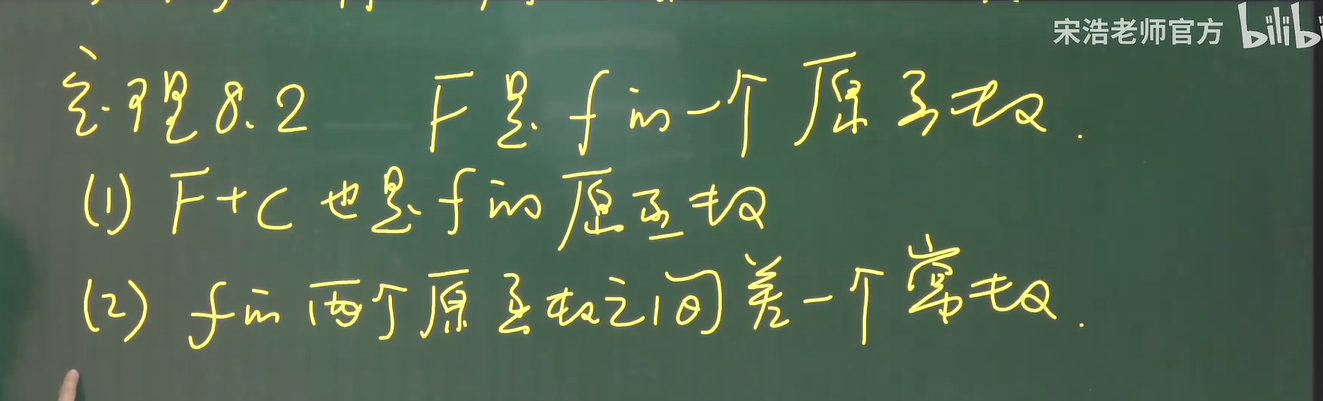 宋浩老师官方 bilibi
定理8.2 F是f的一个原函数.
(1) F+C也是f的原函数
(2) f的两个原函数之间差一个常数.